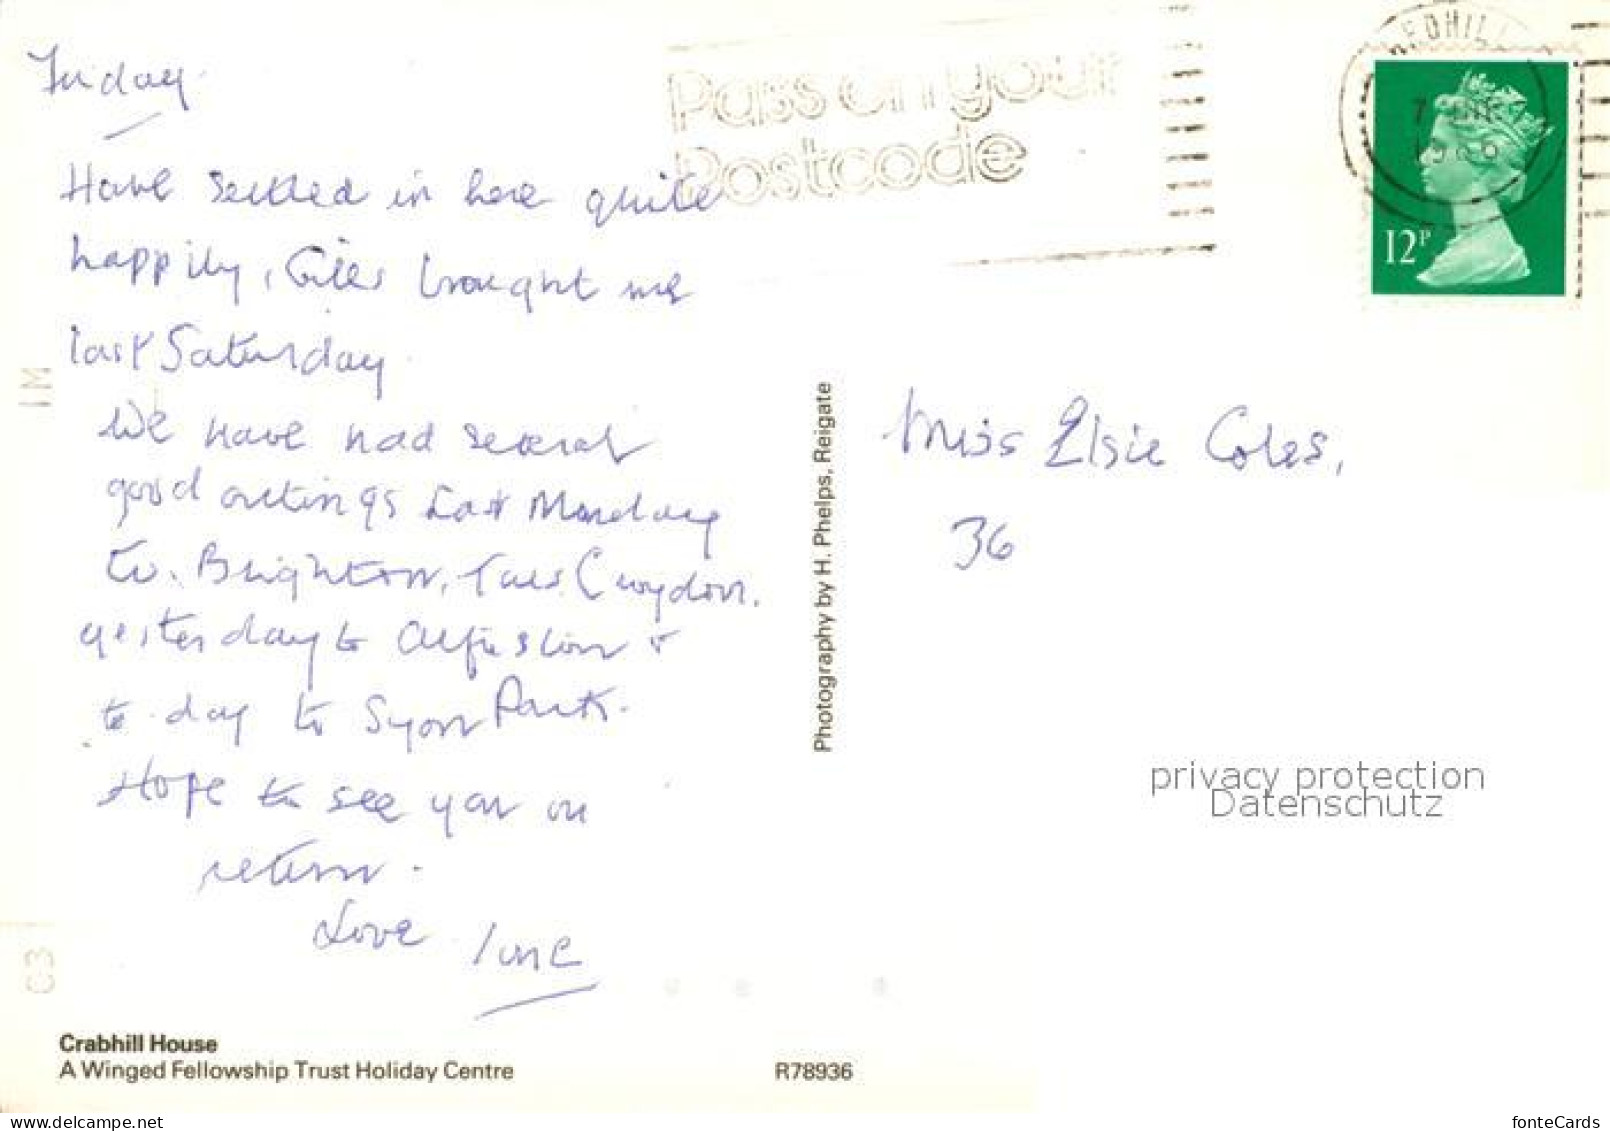 Friday
Have settled in here quite
happily, Giles brought me
last Saturday
We have had several
good outings Last Monday
to. Brighton, Tues Croydon.
yesterday to Alfriston &
to-day to Syon Park.
Hope to see you on
return.
Love June
Crabhill House
A Winged Fellowship Trust Holiday Centre
R78936
Photography by H. Phelps, Reigate
Pass on your
Postcode
12P
Miss Elsie Coles,
36
privacy protection
Datenschutz
www.delcampe.net
fonteCards